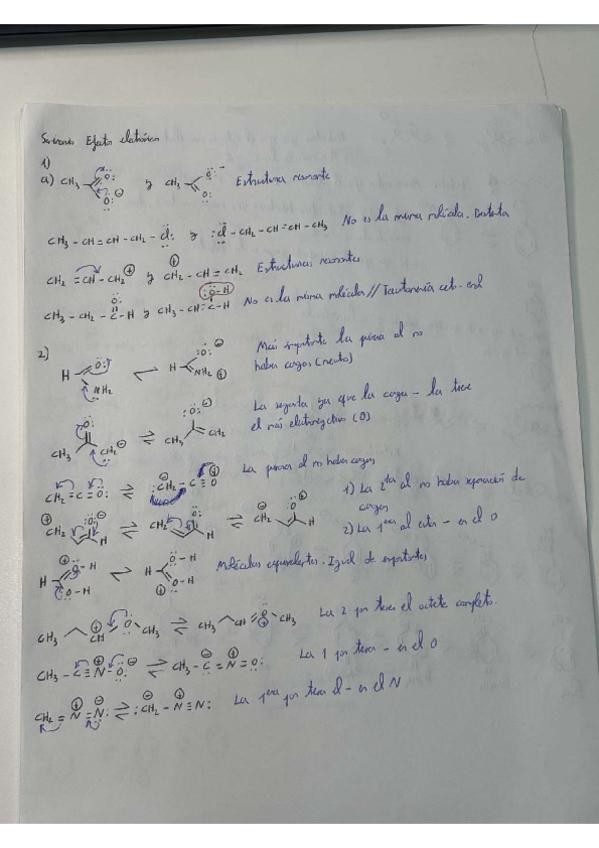 Efecto electrónico
1)
a) CH3 y CH3 Estructura resonante
CH3 - CH = CH - CH2 - Cl: y :Cl - CH2 - CH = CH - CH3 No es la misma molécula. Distinta
CH2 = CH - CH2 ⊕ y CH2 - CH = CH2 Estructuras resonantes
CH3 - CH2 - C - H y CH3 - CH = C - H No es la misma molécula // Tautomería ceto-enol
2)
H O: NH2 ⇌ H :O: ⊖ NH2 ⊕ Más importante la primera al no
haber cargas (neutro)
CH3 CH2 ⊖ ⇌ CH3 CH2 La segunda ya que la carga - la tiene
el más electronegativo (O)
CH2 = C = O: ⇌ :CH2 - C ≡ O La primera al no haber cargas
CH2 H ⇌ CH2 H ⇌ CH2 H 1) La 2ª al no haber separación de
cargas
2) La 1ª al estar - en el O
H O - H O - H ⇌ H O - H O - H Moléculas equivalentes. Igual de importantes
CH3 CH O CH3 ⇌ CH3 CH O CH3 La 2 por tener el octete completo.
CH3 - C ≡ N - O: ⊖ ⇌ CH3 - C = N = O: La 1 por tener - en el O
CH2 = N = N: ⇌ :CH2 - N ≡ N: La 1ª por tener el - en el N